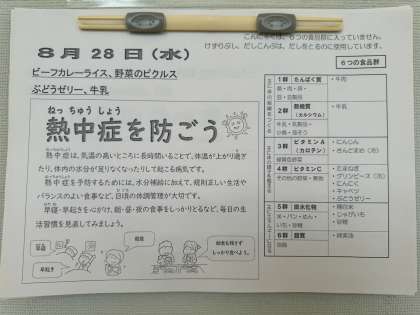 こんにゃくは、6つの食品群に入っていません。
けずりぶし、だしこんぶは、だしをとるのに使用しています。
8月 28日（水）
ビーフカレーライス、野菜のピクルス
ぶどうゼリー、牛乳
ねっ ちゅう しょう
熱中症を防ごう
熱中症は、気温の高いところに長時間いることで、体温が上がり過ぎ
たり、体内の水分が足りなくなったりして起こる病気です。
熱中症を予防するためには、水分補給に加えて、規則正しい生活や
バランスのよい食事など、日頃の体調管理が大切です。
早寝・早起きを心がけ、朝・昼・夜の食事をしっかりとるなど、毎日の生
活習慣を見直してみましょう。
早起き
6つの食品群
1群 たんぱく質
・牛肉
2群 無機質
（カルシウム）
・牛乳
3群 ビタミンA
（カロチン）
・にんじん
緑黄色野菜
4群 ビタミンC
・たまねぎ
・グリンピース（冷）
・にんにく
・キャベツ
・ぶどうゼリー
5群 炭水化物
・精白米
・じゃがいも
・砂糖
6群 脂質
油脂